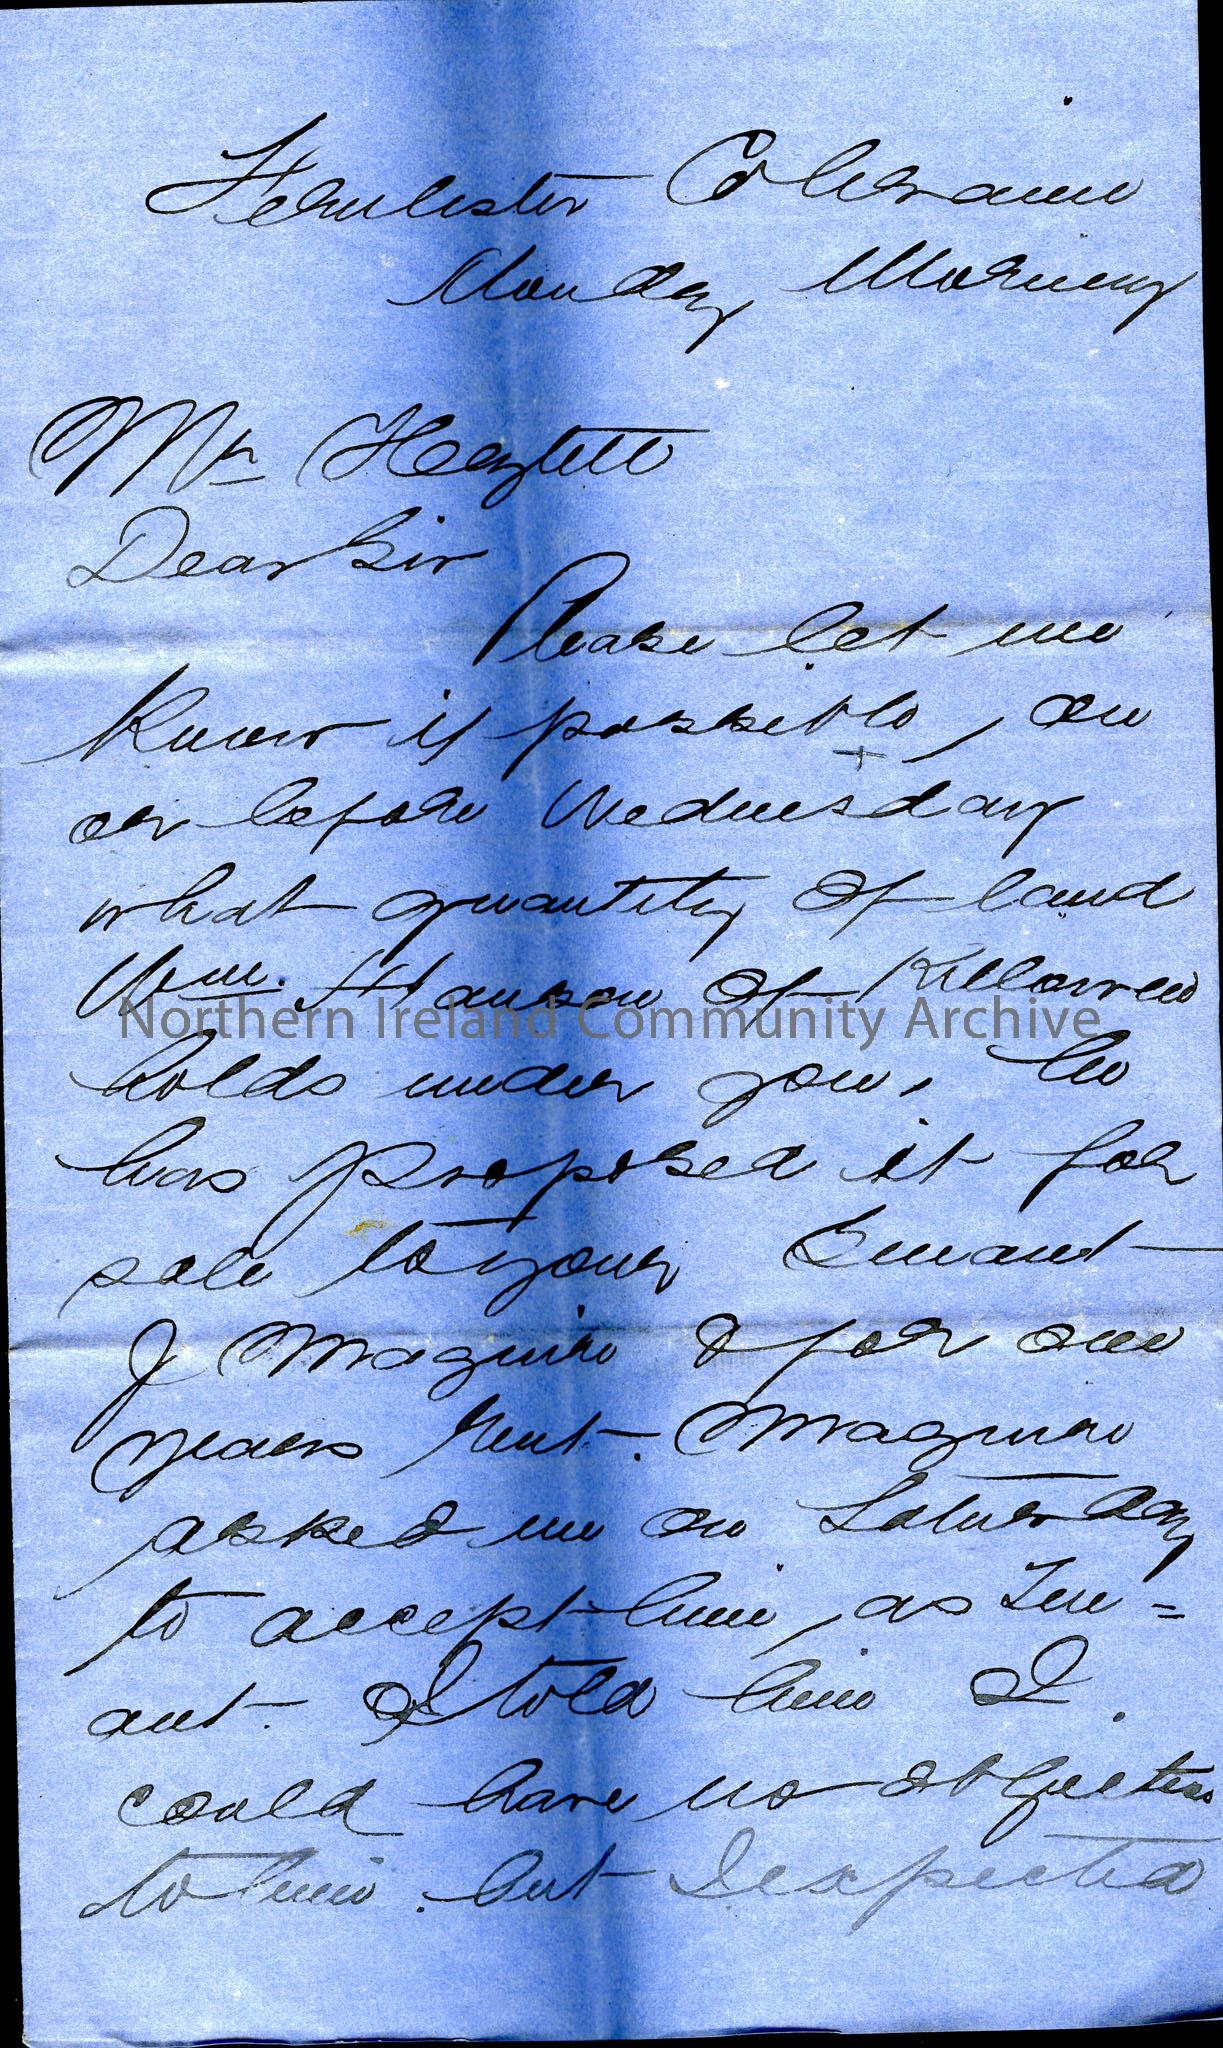 Fernlester Coleraine
Monday Morning
Mr Hezlett
Dear Sir
Please let me
Know if possible, on
or before Wednesday
what quantity of land
Wm. Hanson of Killowen
holds under you, he
has proposed it for
sale to your Tenant
J Maguire & for one
years rent. Maguire
asked me on Saturday
to accept him, as Ten=
ant. I told him I
could have no objections
to him. but I expected
Northern Ireland Community Archive